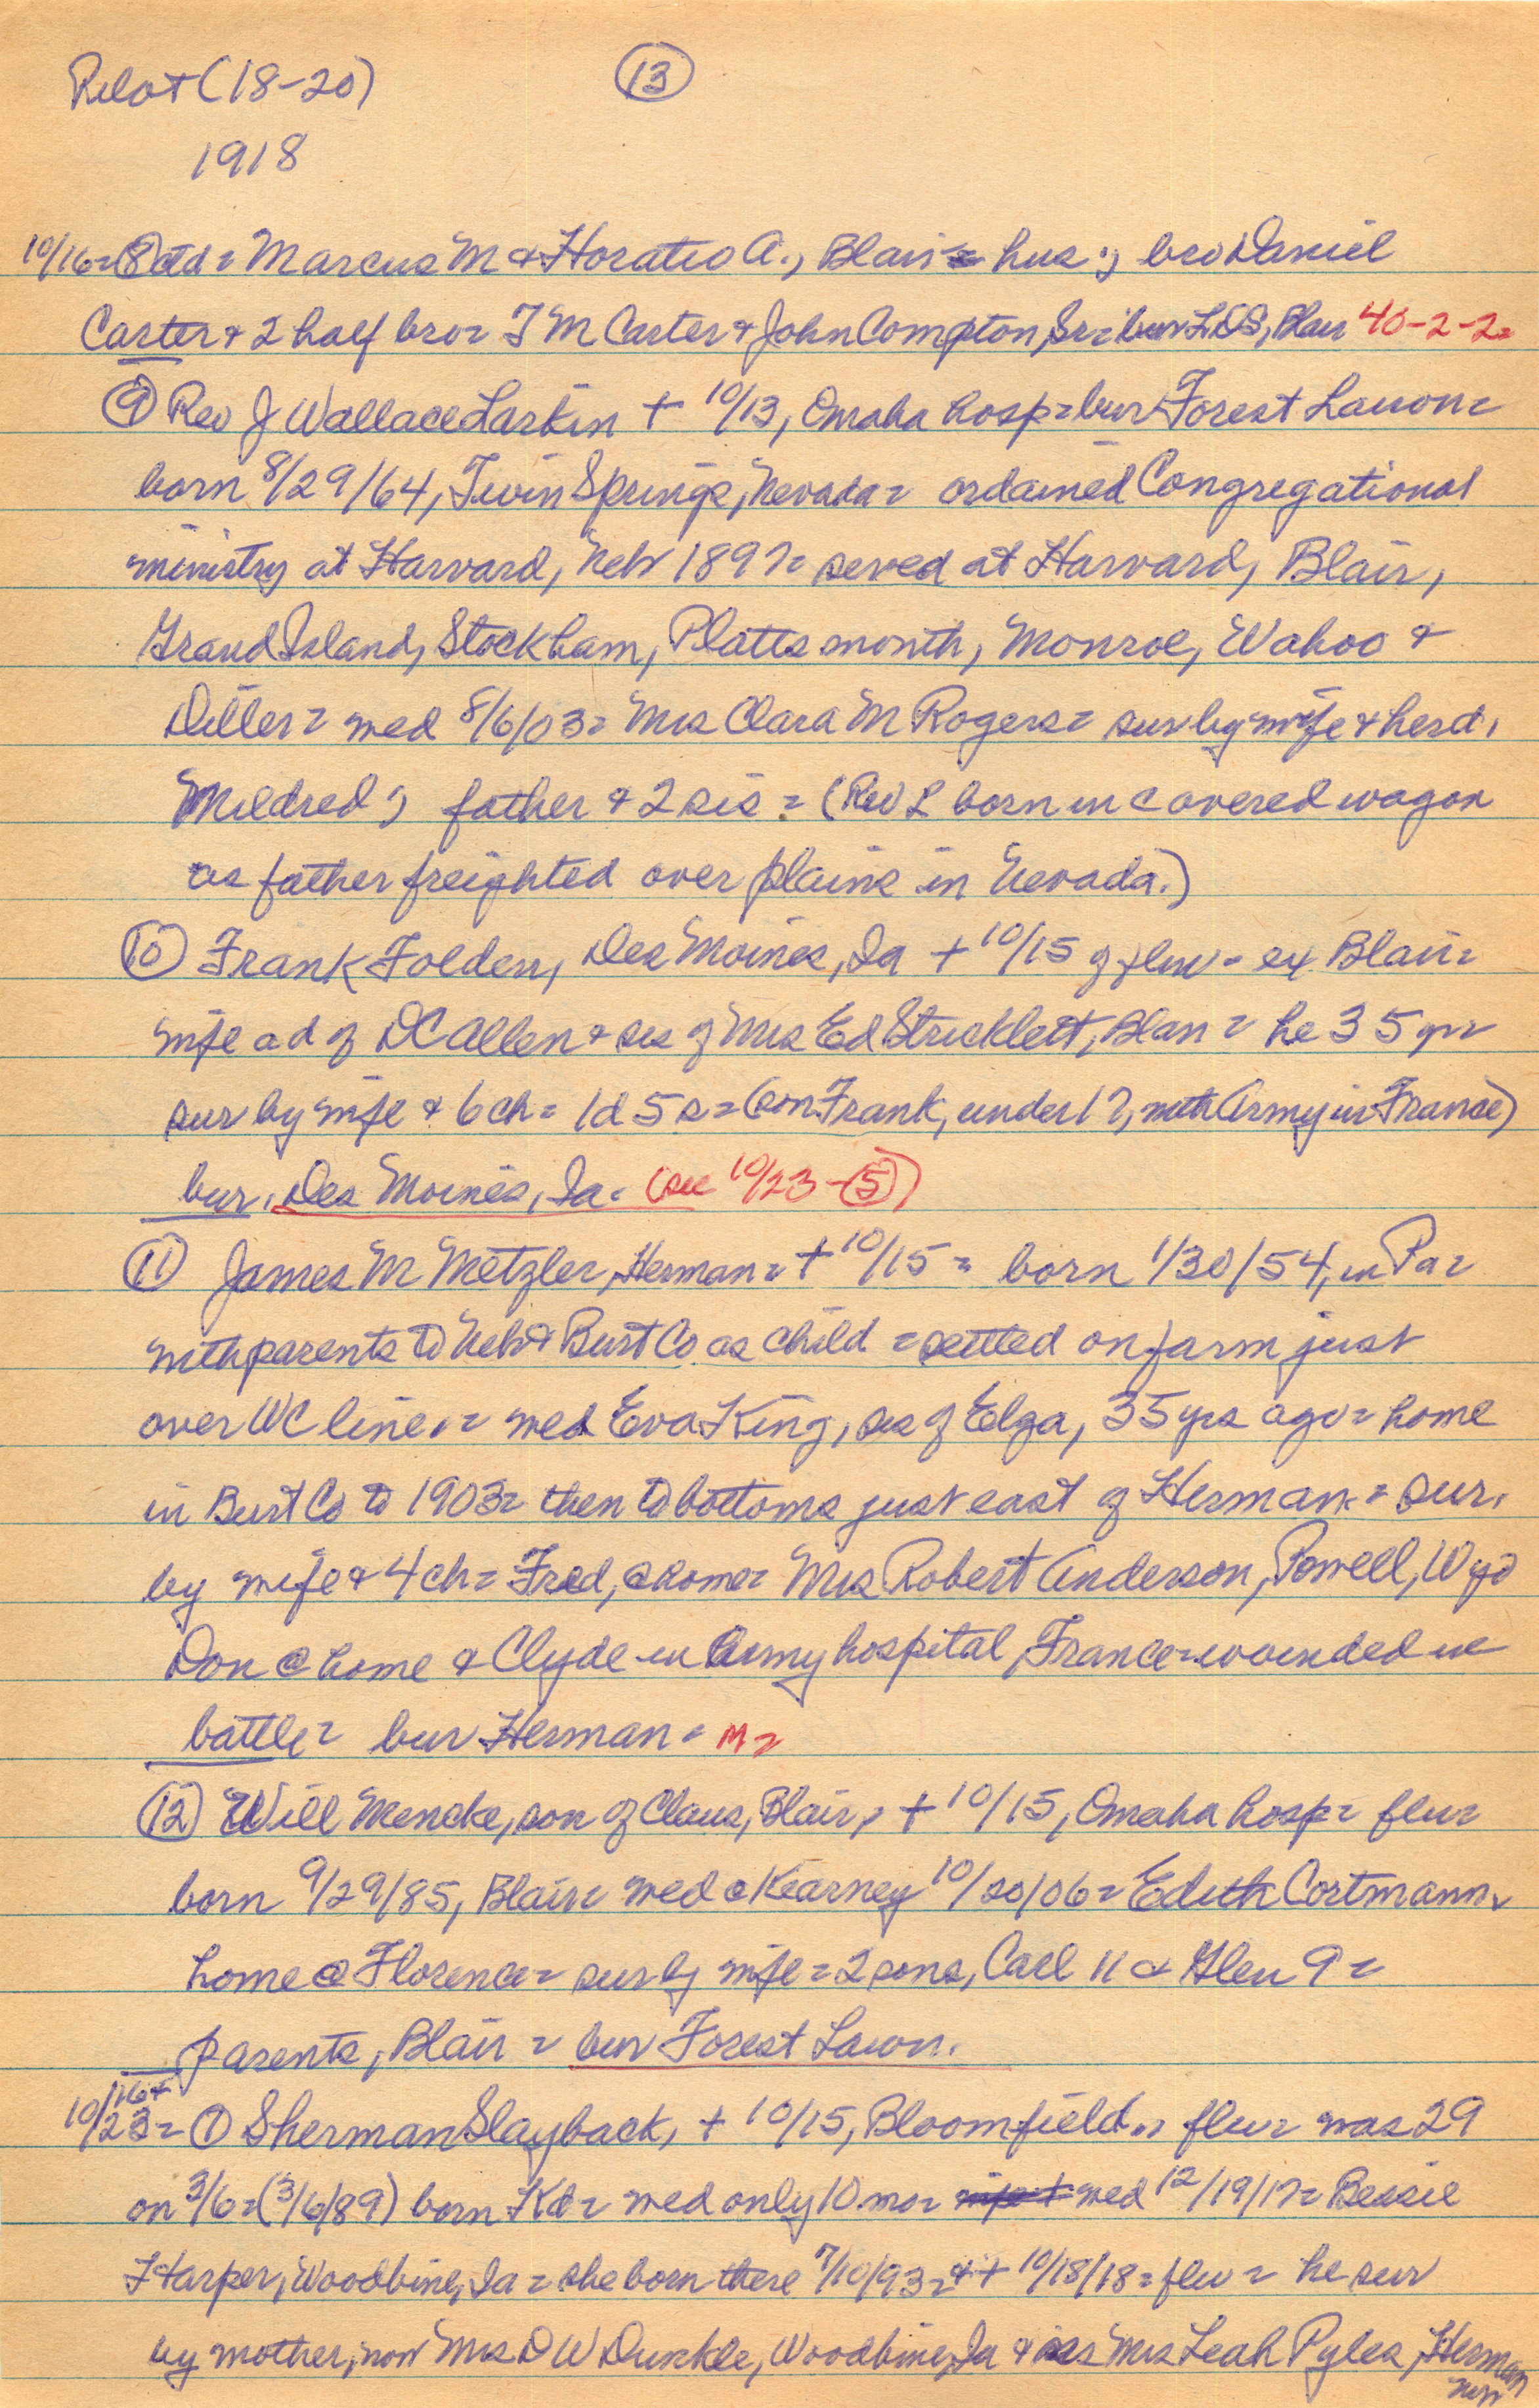 Pilot (18-20)
13
1918
10/16 = 8 ctd = Marcus M & Horatio A., Blair = hus ; bro Daniel
Carter & 2 half bro = T M Carter & John Compton, Sr = bur LDS, Blair 40-2-2=
9 Rev J Wallace Larkin + 10/13, Omaha hosp = bur Forest Lawn =
born 8/29/64, Twin Springs, Nevada = ordained Congregational
ministry at Harvard, Neb 1897 = served at Harvard, Blair,
Grand Island, Stockham, Plattsmouth, Monroe, Wahoo &
Diller = wed 8/6/03 = Mrs Clara M Rogers = sur by wife & her d.
Mildred ; father & 2 sis = (Rev L born in covered wagon
as father freighted over plains in Nevada.)
10 Frank Folden, Des Moines, Ia + 10/15 of flu - ex Blair =
wife a d of D C Allen & sis of Mrs Ed Stricklett, Blair = he 35 yr =
sur by wife & 6 ch = 1 d 5 s = (son Frank, under 17, with Army in France)
bur. Des Moines, Ia. (see 10/23 - 5)
11 James M Metzler, Herman = + 10/15 = born 1/30/54, in Pa =
with parents to Neb & Burt Co as child = settled on farm just
over WC line. = wed Eva King, sis of Elza, 35 yrs ago = home
in Burt Co to 1903 = then to bottoms just east of Herman = sur.
by wife & 4 ch = Fred, @ home = Mrs Robert Anderson, Powell, Wyo
Don @ home & Clyde in Army hospital, France = wounded in
battle = bur Herman = M =
12 Will Mencke, son of Claus, Blair, + 10/15, Omaha hosp = flu =
born 9/29/85, Blair = wed @ Kearney 10/20/06 = Edith Cortmann.
home @ Florence = sur by wife = 2 sons, Carl 11 & Glen 9 =
parents, Blair = bur Forest Lawn.
10/16 +
10/23 = 1 Sherman Slayback, + 10/15, Bloomfield., flu = was 29
on 3/6 = (3/6/89) born Kd = wed only 10 mo = wed 12/19/17 = Bessie
Harper, Woodbine, Ia = she born there 7/10/93 = & + 10/18/18 = flu = he sur
by mother, now Mrs D W Dunkle, Woodbine, Ia & sis Mrs Leah Pyles, Herman